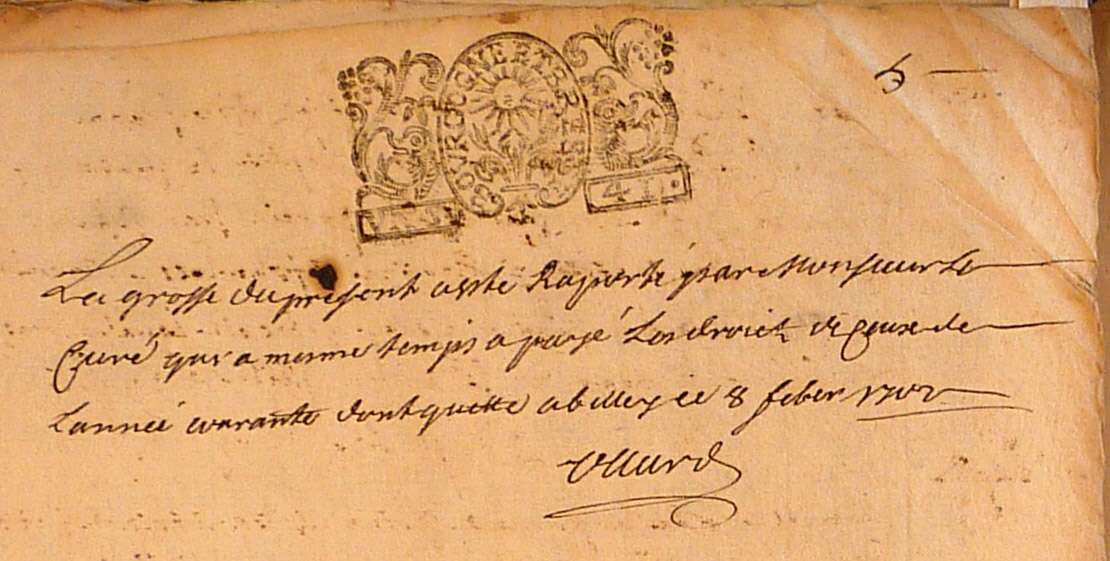 BOVRGOGNE ET BRESSE
UN S
4 D.
La grosse du present acte Raporté par Monsieur le
Curé qui a mesme temps a payé Les droict de ceux de
Lannée courante dont quitte a billey ce 8 feber 1702